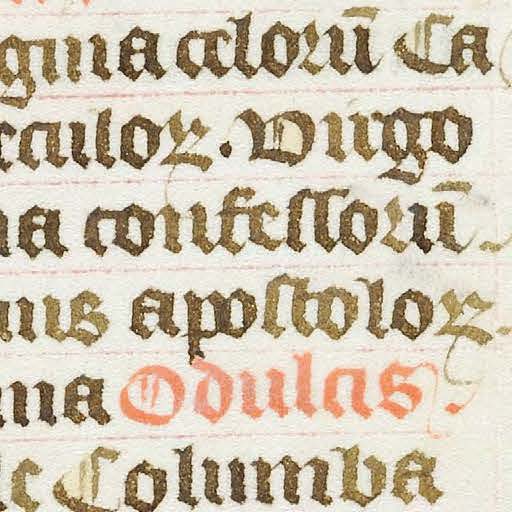 gina celorū Ca
eculoꝝ. Virgo
na confessorū
nus apostoloꝝ
ma Odulcis.
ic Columba